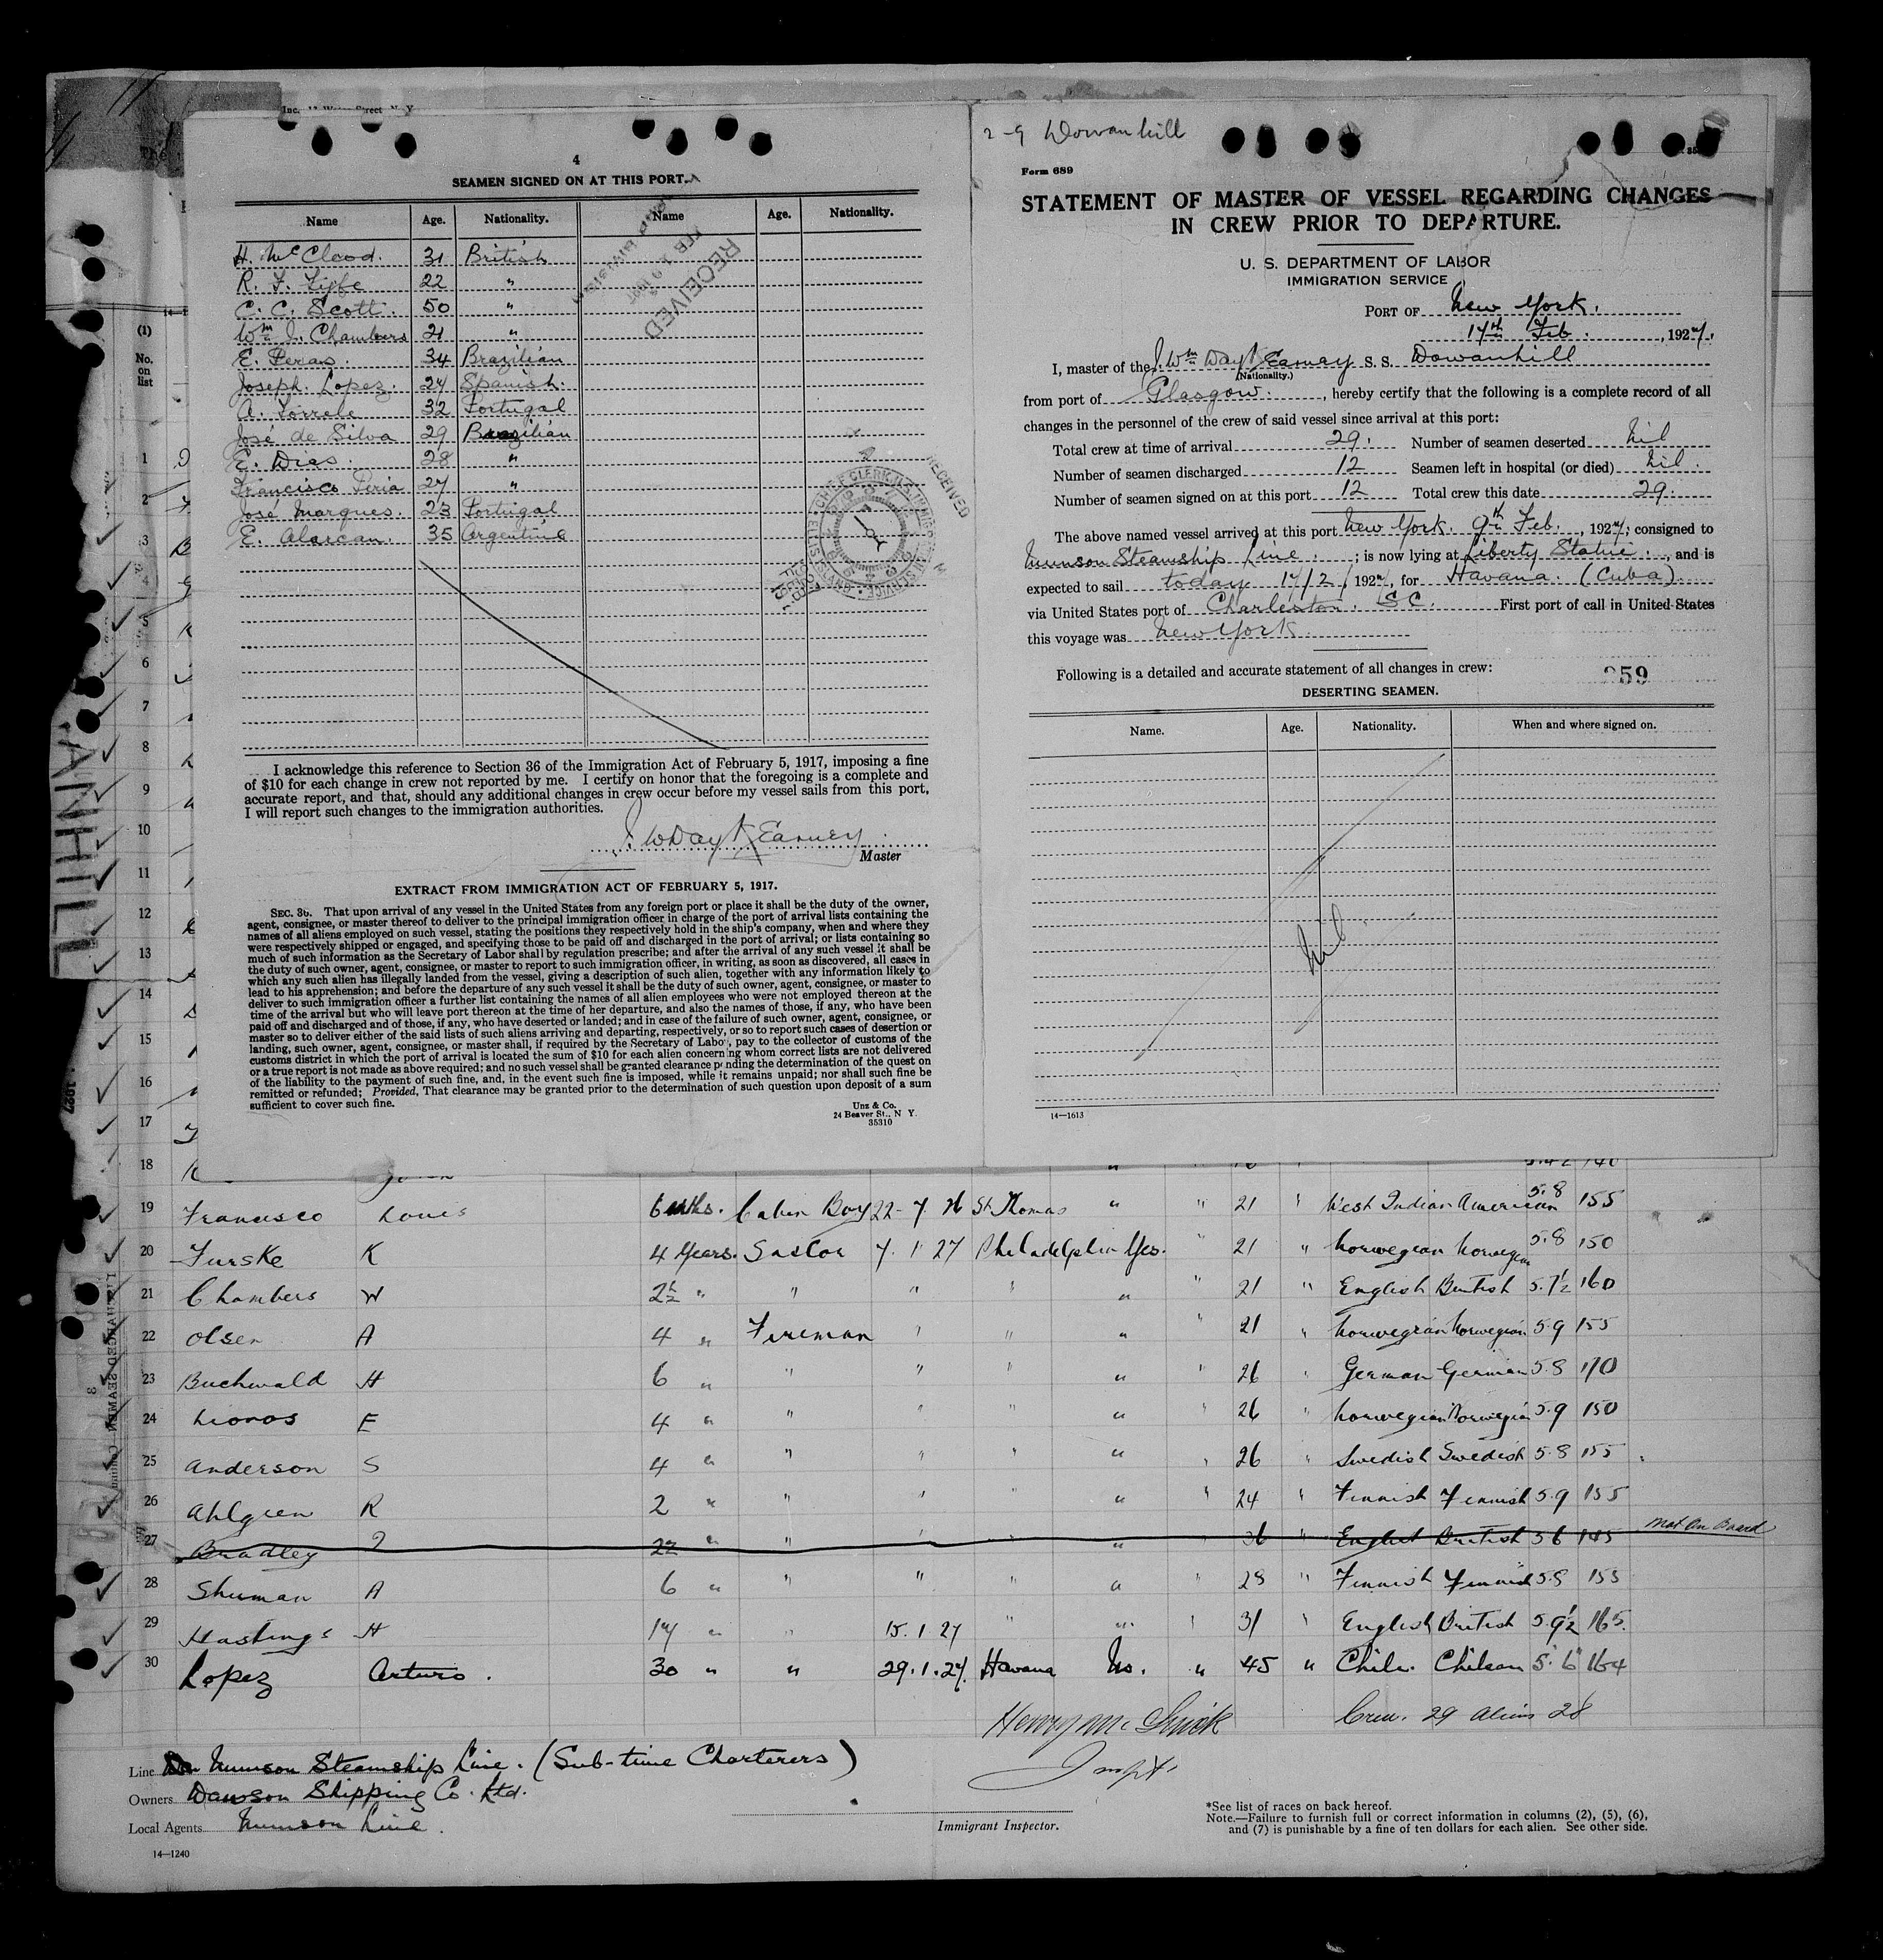 4
SEAMEN SIGNED ON AT THIS PORT.
Name Age. Nationality. Name Age. Nationality.
H. McCleod. 31 British
R. F. 22 "
C. C. Scott. 50 "
Wm J. Chambers 21 "
E. Peras. 34 Brazilian
Joseph Lopez. 27 Spanish.
A. 32 Portugal
José de Silva 29 Brazilian
E. Dias. 28 "
Francisco 27 "
José Marques. 23 Portugal
E. Alarcan. 35 Argentine
RECEIVED
I acknowledge this reference to Section 36 of the Immigration Act of February 5, 1917, imposing a fine
of $10 for each change in crew not reported by me. I certify on honor that the foregoing is a complete and
accurate report, and that, should any additional changes in crew occur before my vessel sails from this port,
I will report such changes to the immigration authorities.
Master
EXTRACT FROM IMMIGRATION ACT OF FEBRUARY 5, 1917.
SEC. 36. That upon arrival of any vessel in the United States from any foreign port or place it shall be the duty of the owner,
agent, consignee, or master thereof to deliver to the principal immigration officer in charge of the port of arrival lists containing the
names of all aliens employed on such vessel, stating the positions they respectively hold in the ship's company, when and where they
were respectively shipped or engaged, and specifying those to be paid off and discharged in the port of arrival; or lists containing so
much of such information as the Secretary of Labor shall by regulation prescribe; and after the arrival of any such vessel it shall be
the duty of such owner, agent, consignee, or master to report to such immigration officer, in writing, as soon as discovered, all cases in
which any such alien has illegally landed from the vessel, giving a description of such alien, together with any information likely to
lead to his apprehension; and before the departure of any such vessel it shall be the duty of such owner, agent, consignee, or master to
deliver to such immigration officer a further list containing the names of all alien employees who were not employed thereon at the
time of the arrival but who will leave port thereon at the time of her departure, and also the names of those, if any, who have been
paid off and discharged and of those, if any, who have deserted or landed; and in case of the failure of such owner, agent, consignee, or
master so to deliver either of the said lists of such aliens arriving and departing, respectively, or so to report such cases of desertion or
landing, such owner, agent, consignee, or master shall, if required by the Secretary of Labor, pay to the collector of customs of the
customs district in which the port of arrival is located the sum of $10 for each alien concerning whom correct lists are not delivered
or a true report is not made as above required; and no such vessel shall be granted clearance pending the determination of the question
of the liability to the payment of such fine, and, in the event such fine is imposed, while it remains unpaid; nor shall such fine be
remitted or refunded; Provided, That clearance may be granted prior to the determination of such question upon deposit of a sum
sufficient to cover such fine.
Unz & Co.
24 Beaver St., N Y.
35310
2-9 Dowanhill
Form 689
STATEMENT OF MASTER OF VESSEL REGARDING CHANGES
IN CREW PRIOR TO DEPARTURE.
U. S. DEPARTMENT OF LABOR
IMMIGRATION SERVICE
PORT OF New York.
17th Feb. , 1927.
I, master of the J. Wm Day Kearney S. S. Dowanhill
(Nationality.)
from port of Glasgow. , hereby certify that the following is a complete record of all
changes in the personnel of the crew of said vessel since arrival at this port:
Total crew at time of arrival 29. Number of seamen deserted Nil
Number of seamen discharged 12 Seamen left in hospital (or died) Nil.
Number of seamen signed on at this port 12 Total crew this date 29.
The above named vessel arrived at this port New York. 9th Feb. , 1927; consigned to
Munson Steamship Line. ; is now lying at Liberty Statue. , and is
expected to sail today 17/2/1927, for Havana. (Cuba).
via United States port of Charleston. S C. First port of call in United States
this voyage was New York.
Following is a detailed and accurate statement of all changes in crew:
59
DESERTING SEAMEN.
Name. Age. Nationality. When and where signed on.
Nil
14—1613
ANHILL
(1)
No.
on
list
1
2
3
4
5
6
7
8
9
10
11
12
13
14
15
16
17
18
19 Francisco Louis 6 mths. Cabin Boy 22-7 26 St Thomas " " 21 " West Indian American 5.8 155
20 Furske K 4 Years. Sailor 7.1.27 Philadelphia Yes. " 21 " Norwegian Norwegian 5.8 150
21 Chambers W 2½ " " " " " " 21 " English British 5.7½ 160
22 Olsen A 4 " Fireman " " " " 21 " Norwegian Norwegian 5.9 155
23 Buchwald H 6 " " " " " " 26 " German German 5.8 170
24 E 4 " " " " " " 26 " Norwegian Norwegian 5.9 150
25 Anderson S 4 " " " " " " 26 " Swedish Swedish 5.8 155
26 Ahlgren R 2 " " " " " " 24 " Finnish Finnish 5.9 155
27 Bradley 22 " " " " " " 36 " English British 5 6 145 Not On Board
28 Shuman A 6 " " " " " " 28 " Finnish Finnish 5.8 155
29 Hastings H 17 " " 15.1.27 " " " 31 " English British 5.9½ 165.
30 Lopez Arturo. 30 " " 29.1.27. Havana No. " 45 " Chile. Chilean 5'6" 164
Crew. 29 Aliens 28
Line Munson Steamship Line. (Sub-time Charterers)
Owners Dawson Shipping Co. Ltd.
Local Agents Munson Line.
Immigrant Inspector.
*See list of races on back hereof.
Note.—Failure to furnish full or correct information in columns (2), (5), (6),
and (7) is punishable by a fine of ten dollars for each alien. See other side.
14—1240